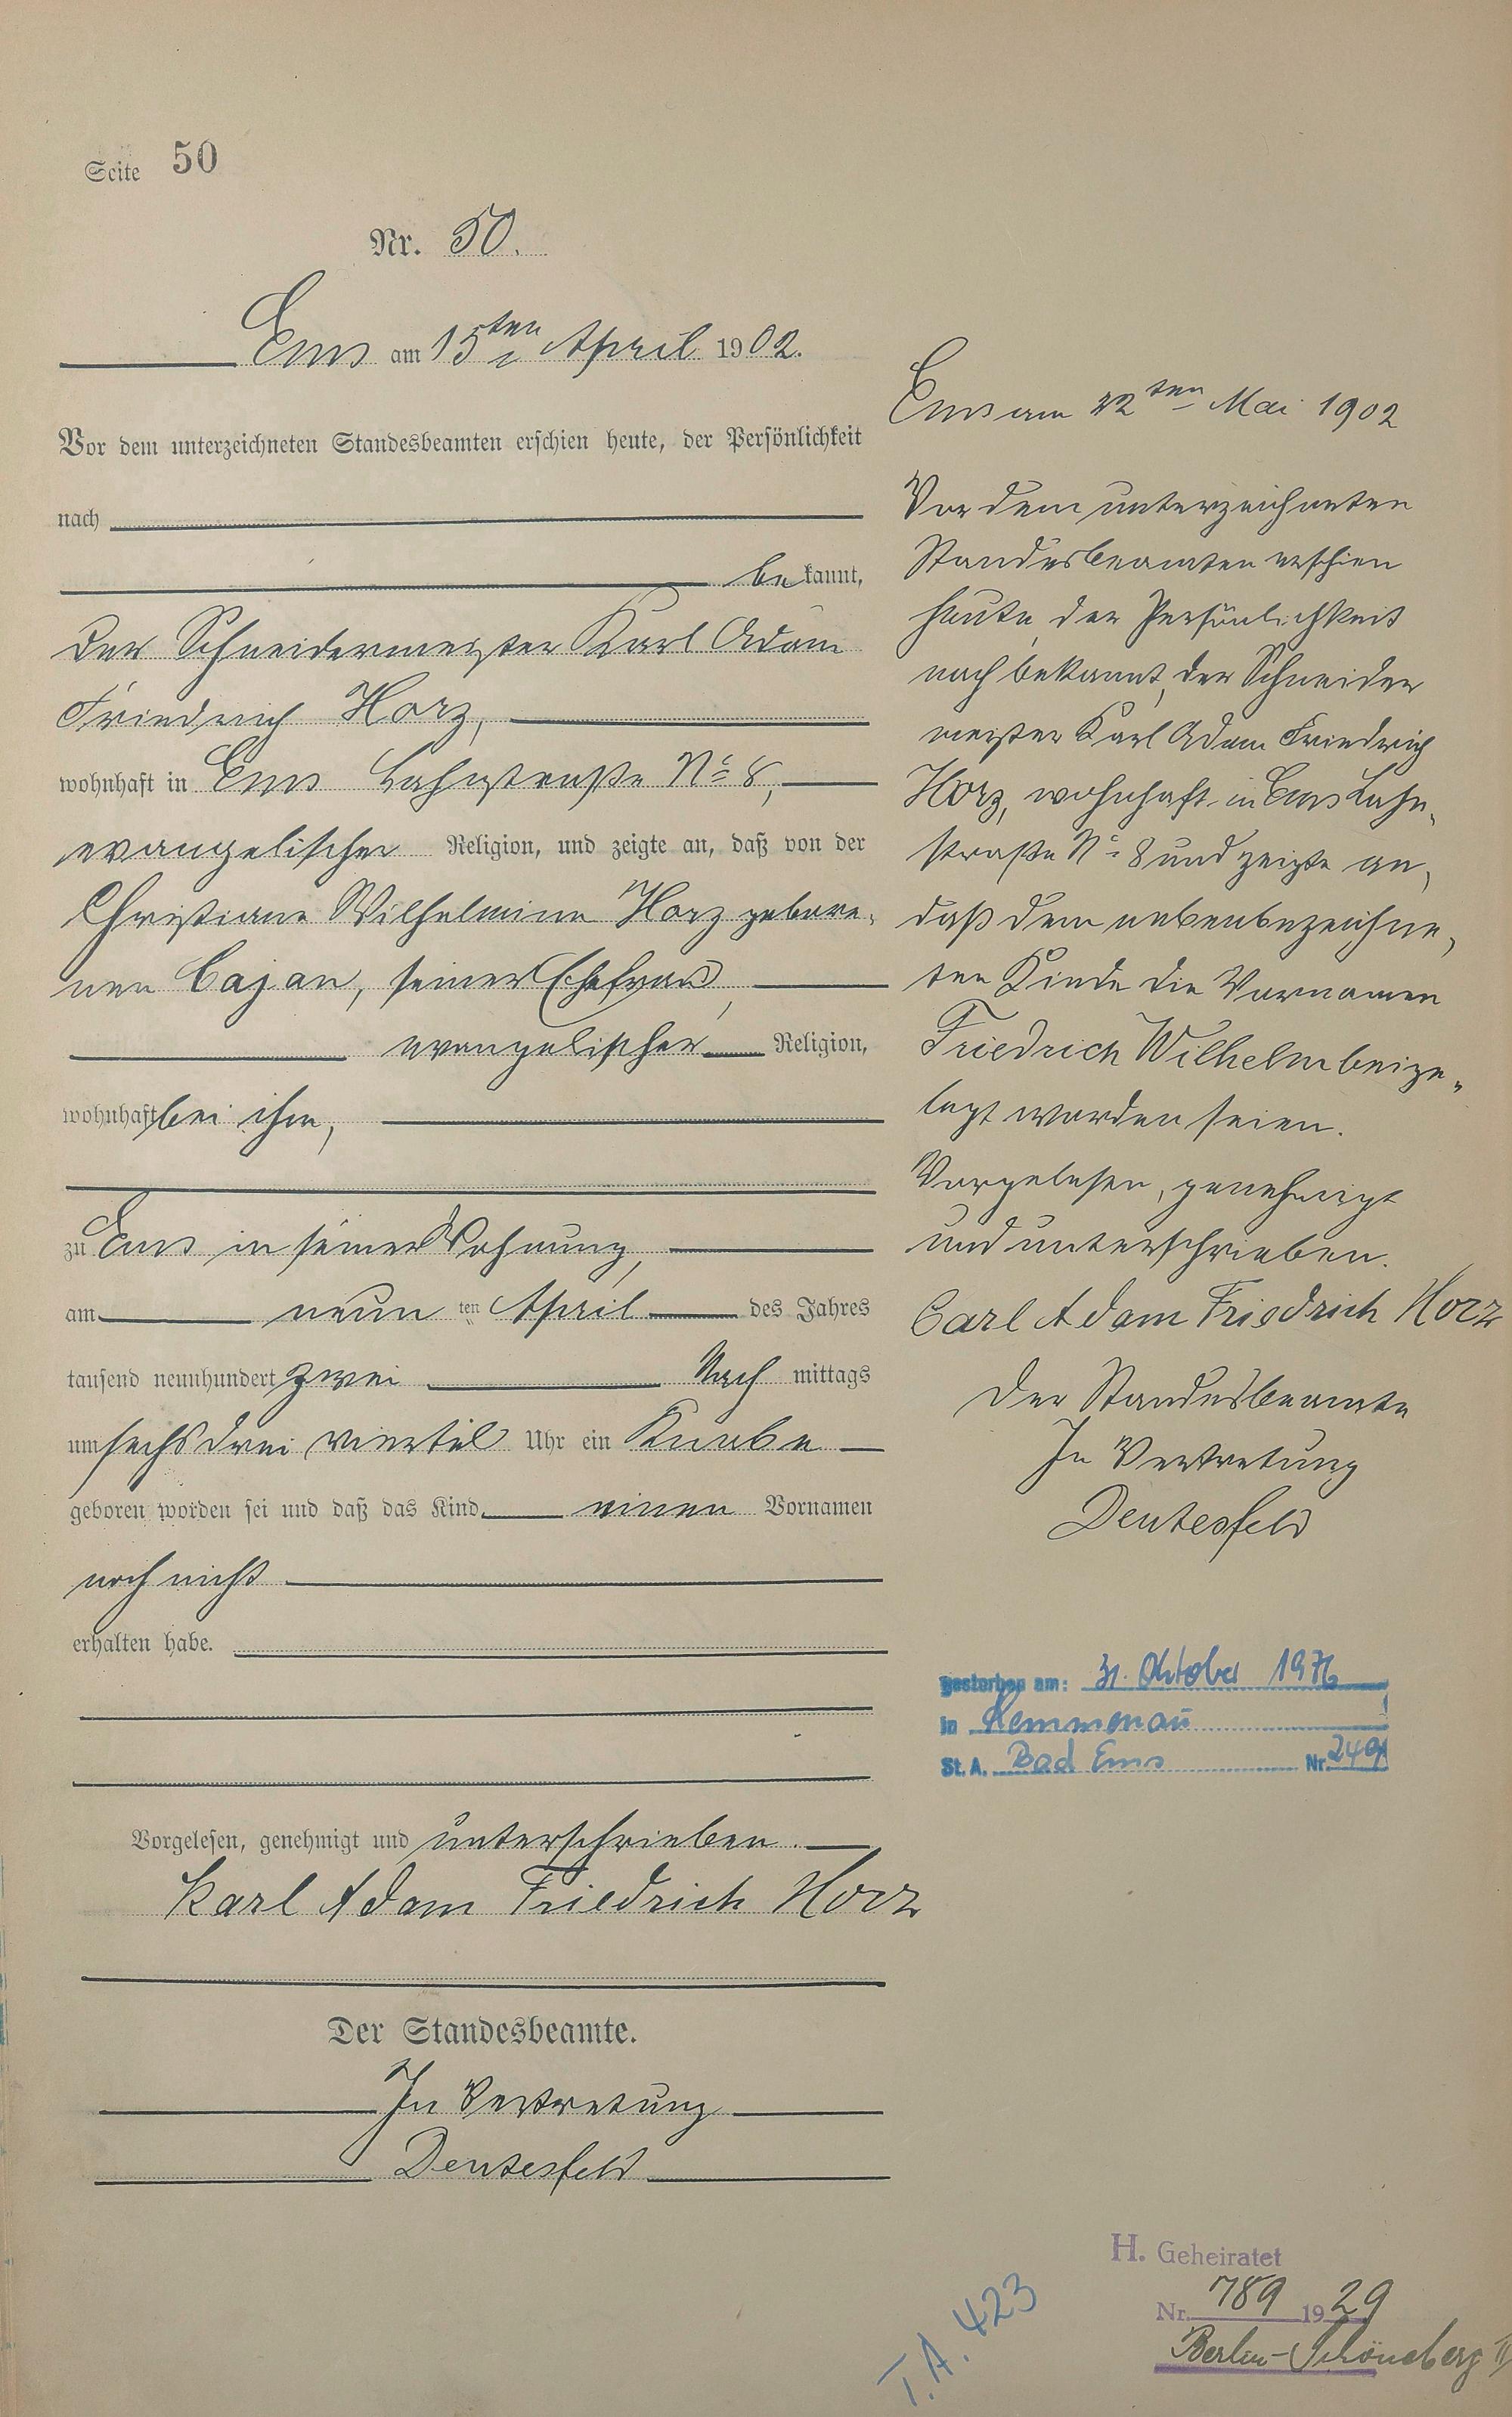 Seite 50
Nr. 50.
Ems am 15ten April 1902.
Vor dem unterzeichneten Standesbeamten erschien heute, der Persönlichkeit
nach
bekannt,
der Schneidermeister Karl Adam
Friedrich Horz,
wohnhaft in Ems Lahnstraße No 8,
evangelischer Religion, und zeigte an, daß von der
Christiane Wilhelmine Horz gebore-
nen Cajan, seiner Ehefrau,
evangelischer Religion,
wohnhaft bei ihm,
zu Ems in seiner Wohnung,
am neun ten April des Jahres
tausend neunhundert zwei Nach mittags
um sechs drei viertel Uhr ein Knabe
geboren worden sei und daß das Kind einen Vornamen
noch nicht
erhalten habe.
Vorgelesen, genehmigt und unterschrieben.
Karl Adam Friedrich Horz
Der Standesbeamte.
In Vertretung
Deutesfeld
Ems am 22ten Mai 1902
Vor dem unterzeichneten
Standesbeamten erschien
heute, der Persönlichkeit
nach bekannt, der Schneider
meister Karl Adam Friedrich
Horz, wohnhaft in Ems Lahn-
straße No 8 und zeigte an,
daß dem nebenbezeichne-
ten Kinde die Vornamen
Friedrich Wilhelm beige-
legt worden seien.
Vorgelesen, genehmigt
und unterschrieben.
Carl Adam Friedrich Horz
Der Standesbeamte
In Vertretung
Deutesfeld
gestorben am: 31. Oktober 1976
in Kemmenau
St. A. Bad Ems Nr. 249
T.A. 423
H. Geheiratet
Nr. 789 1929
Berlin-Schöneberg II